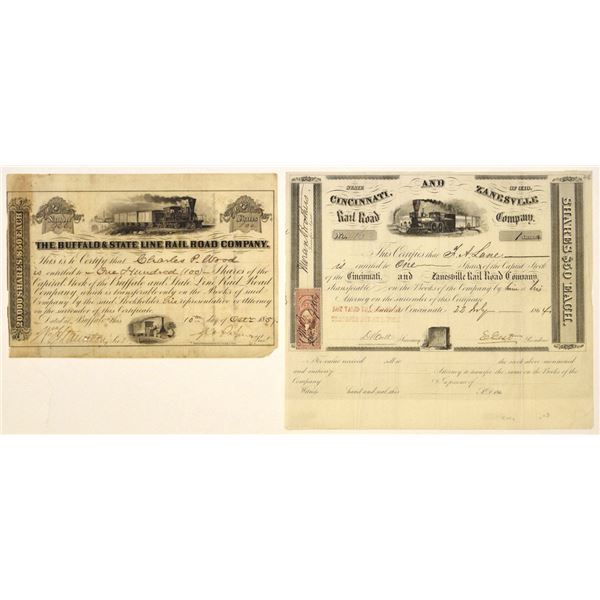 20,000 SHARES $50 EACH
Shares
THE BUFFALO & STATE LINE RAIL ROAD COMPANY.
This is to Certify that Charles P. Wood
is entitled to One Hundred (100) Shares of the
Capital Stock of the Buffalo and State Line Rail Road
Company, which is transferable only on the Books of said
Company by the said Stockholder, his representative or attorney
on the surrender of this Certificate.
Dated at Buffalo this 10th day of Oct 185
STATE OF OHIO.
CINCINNATI, AND ZANESVILLE
Rail Road Company.
No. 1 Shares
SHARES $50 EACH.
This Certifies that F. A. Lane
is entitled to One Shares of the Capital Stock
of the Cincinnati, and Zanesville Rail Road Company,
Transferable on the Books of the Company by him or his
Attorney on the surrender of this Certificate
Cincinnati 23 July 1864
Secretary President
For value received sell to the stock above mentioned
and authorize Attorney to transfer the same on the Books of the
Company
Witness hand and seal this